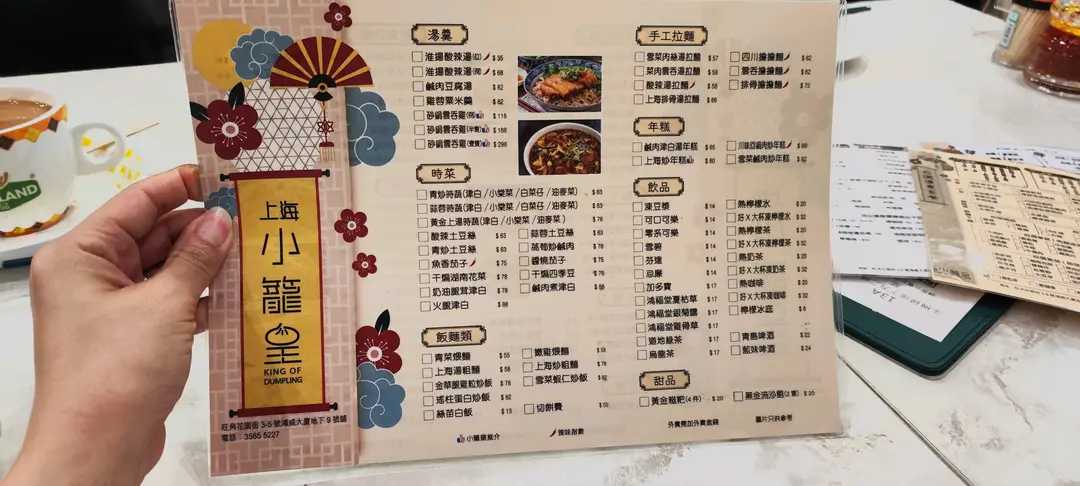 LAND
上海
小
籠
皇
KING OF
DUMPLING
旺角花園街 3-5 號鴻威大廈地下 9 號舖
電話：3565 5227
湯羹
淮揚酸辣湯(位) $ 35
淮揚酸辣湯 $ 68
鹹肉豆腐湯 $ 82
雞蓉粟米羹 $ 82
砂鍋雲吞雞(例) $ 118
砂鍋雲吞雞(半隻) $ 168
砂鍋雲吞雞(壹隻) $ 298
時菜
青炒時蔬(津白/小棠菜/白菜仔/油麥菜) $ 63
蒜蓉時蔬(津白/小棠菜/白菜仔/油麥菜) $ 63
黃金上湯時蔬(津白/小棠菜/油麥菜) $ 76
酸辣土豆絲 $ 63
蒜蓉土豆絲 $ 63
青炒土豆絲 $ 63
蒿筍炒鹹肉 $ 78
魚香茄子 $ 75
醬燒茄子 $ 75
干煸湖南花菜 $ 78
干煸四季豆 $ 78
奶油腿茸津白 $ 78
鹹肉煮津白 $ 88
火腿津白 $ 88
飯麵類
青菜煨麵 $ 55
嫩雞煨麵 $ 58
上海湯粗麵 $ 58
上海炒粗麵 $ 78
金華腿雞粒炒飯 $ 78
雪菜蝦仁炒飯 $ 82
瑤柱蛋白炒飯 $ 82
絲苗白飯 $ 13
切餅費 $ 50
手工拉麵
雪菜肉絲湯拉麵 $ 57
四川擔擔麵 $ 62
菜肉雲吞湯拉麵 $ 58
雲吞擔擔麵 $ 62
酸辣湯拉麵 $ 58
排骨擔擔麵 $ 72
上海排骨湯拉麵 $ 66
年糕
鹹肉津白湯年糕 $ 65
川味豆鹵肉炒年糕 $ 80
上海炒年糕 $ 80
雪菜鹹肉炒年糕 $ 82
飲品
凍豆漿 $ 14
熱檸檬水 $ 20
可口可樂 $ 14
好X大杯凍檸檬水 $ 32
零系可樂 $ 14
熱檸檬茶 $ 20
雪碧 $ 14
好X大杯凍檸檬茶 $ 32
芬達 $ 14
熱奶茶 $ 20
忌廉 $ 14
好X大杯凍奶茶 $ 32
加多寶 $ 17
熱咖啡 $ 20
鴻福堂夏枯草 $ 17
好X大杯凍咖啡 $ 32
鴻福堂銀菊露 $ 17
檸檬冰底 $ 8
鴻福堂雞骨草 $ 17
道地綠茶 $ 17
青島啤酒 $ 22
烏龍茶 $ 17
藍妹啤酒 $ 24
甜品
黃金糍粑(4件) $ 20
黑金流沙飽(2隻) $ 20
小籠皇推介
辣味指數
外賣需加外賣盒錢
圖片只供參考
13A